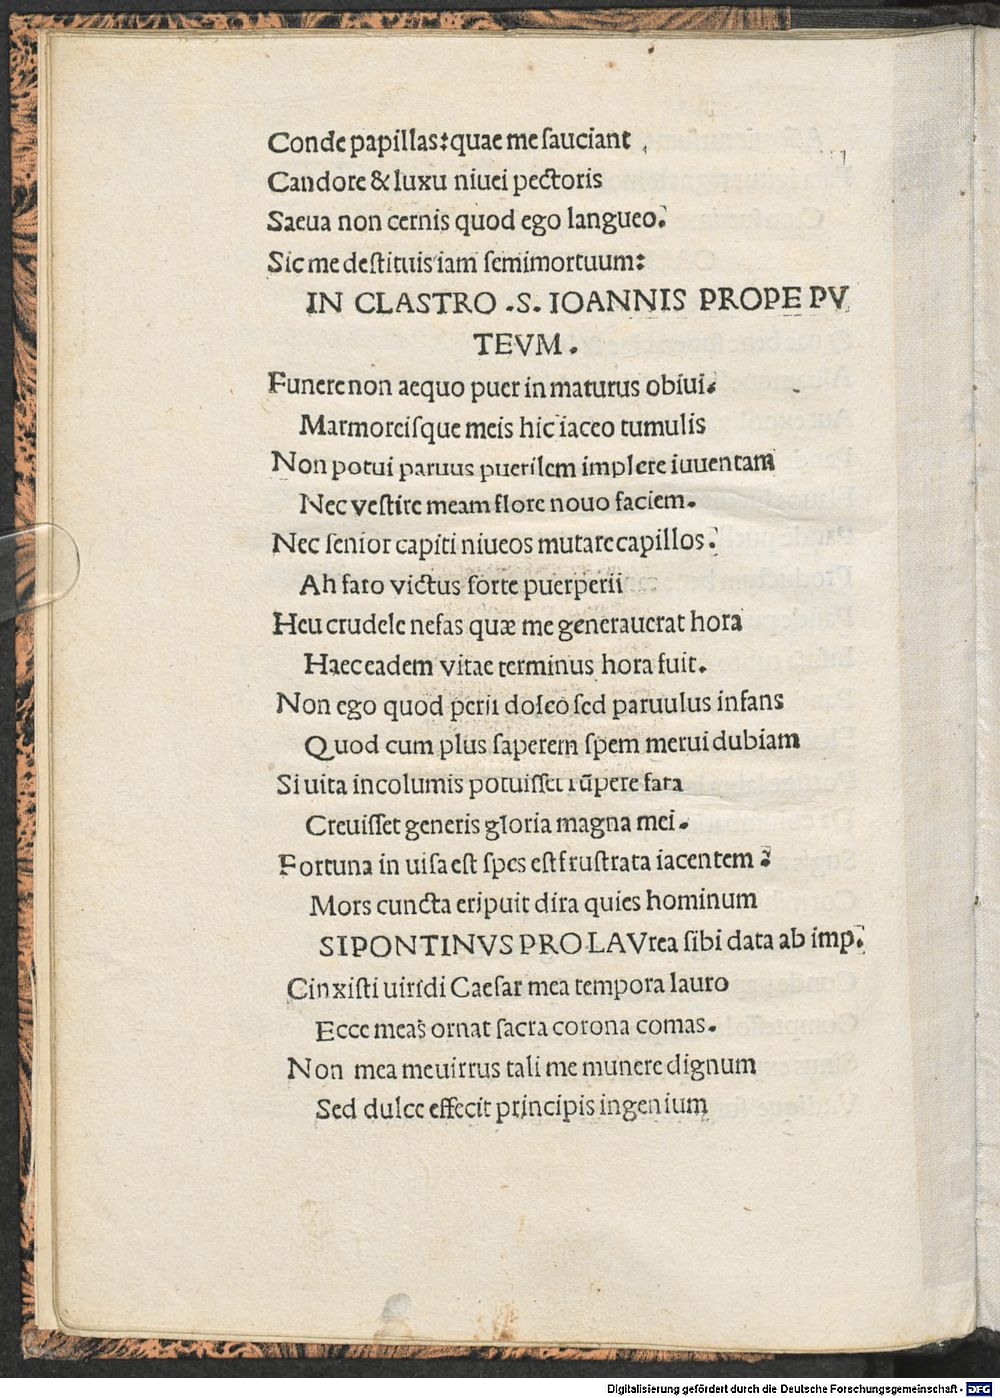 Conde papillas: quae me ſauciant
Candore & luxu niuei pectoris
Saeua non cernis quod ego langueo.
Sic me deſtituis iam ſemimortuum:
IN CLASTRO .S. IOANNIS PROPE PV
TEVM.
Funere non aequo puer in maturus obiui.
Marmoreiſque meis hic iaceo tumulis
Non potui paruus puerilem implere iuuentam
Nec veſtire meam flore nouo faciem.
Nec ſenior capiti niueos mutare capillos:
Ah fato victus forte puerperii
Heu crudele nefas quæ me generauerat hora
Haec eadem vitae terminus hora fuit.
Non ego quod perii doleo ſed paruulus infans
Quod cum plus ſaperem ſpem merui dubiam
Si uita incolumis potuiſſet rūpere fata
Creuiſſet generis gloria magna mei.
Fortuna in uiſa eſt ſpes eſt fruſtrata iacentem:
Mors cuncta eripuit dira quies hominum
SIPONTINVS PRO LAVrea ſibi data ab imp.
Cinxiſti uiridi Caeſar mea tempora lauro
Ecce meas ornat ſacra corona comas.
Non mea meuirtus tali me munere dignum
Sed dulce effecit principis ingenium
Digitalisierung gefördert durch die Deutsche Forschungsgemeinschaft - DFG